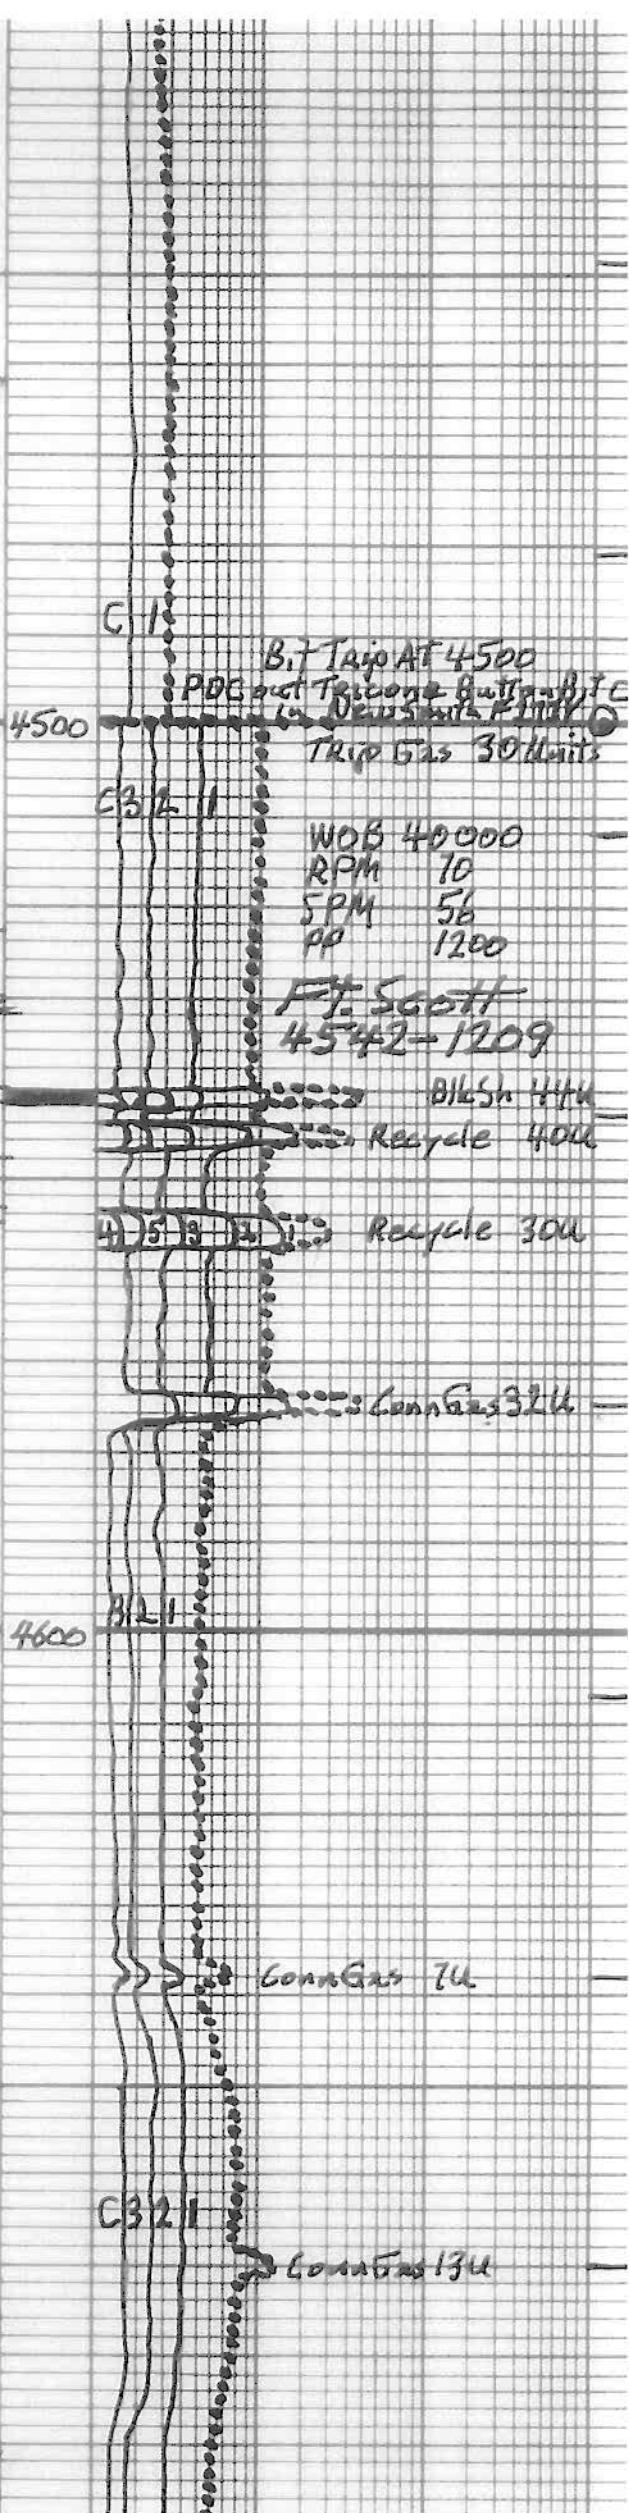 C 1
Bit Trip AT 4500
PDC out Tricone Button Bit
in New Smith
4500
Trip Gas 30 Units
C 3 2 1
WOB 40000
RPM 70
SPM 56
PP 1200
Ft. Scott
4542-1209
Blk Sh 44u
Recycle 40u
4 5 3 2 1 Recycle 30u
Conn Gas 32u
3 2 1
4600
Conn Gas 7u
C 3 2 1
Conn Gas 13u